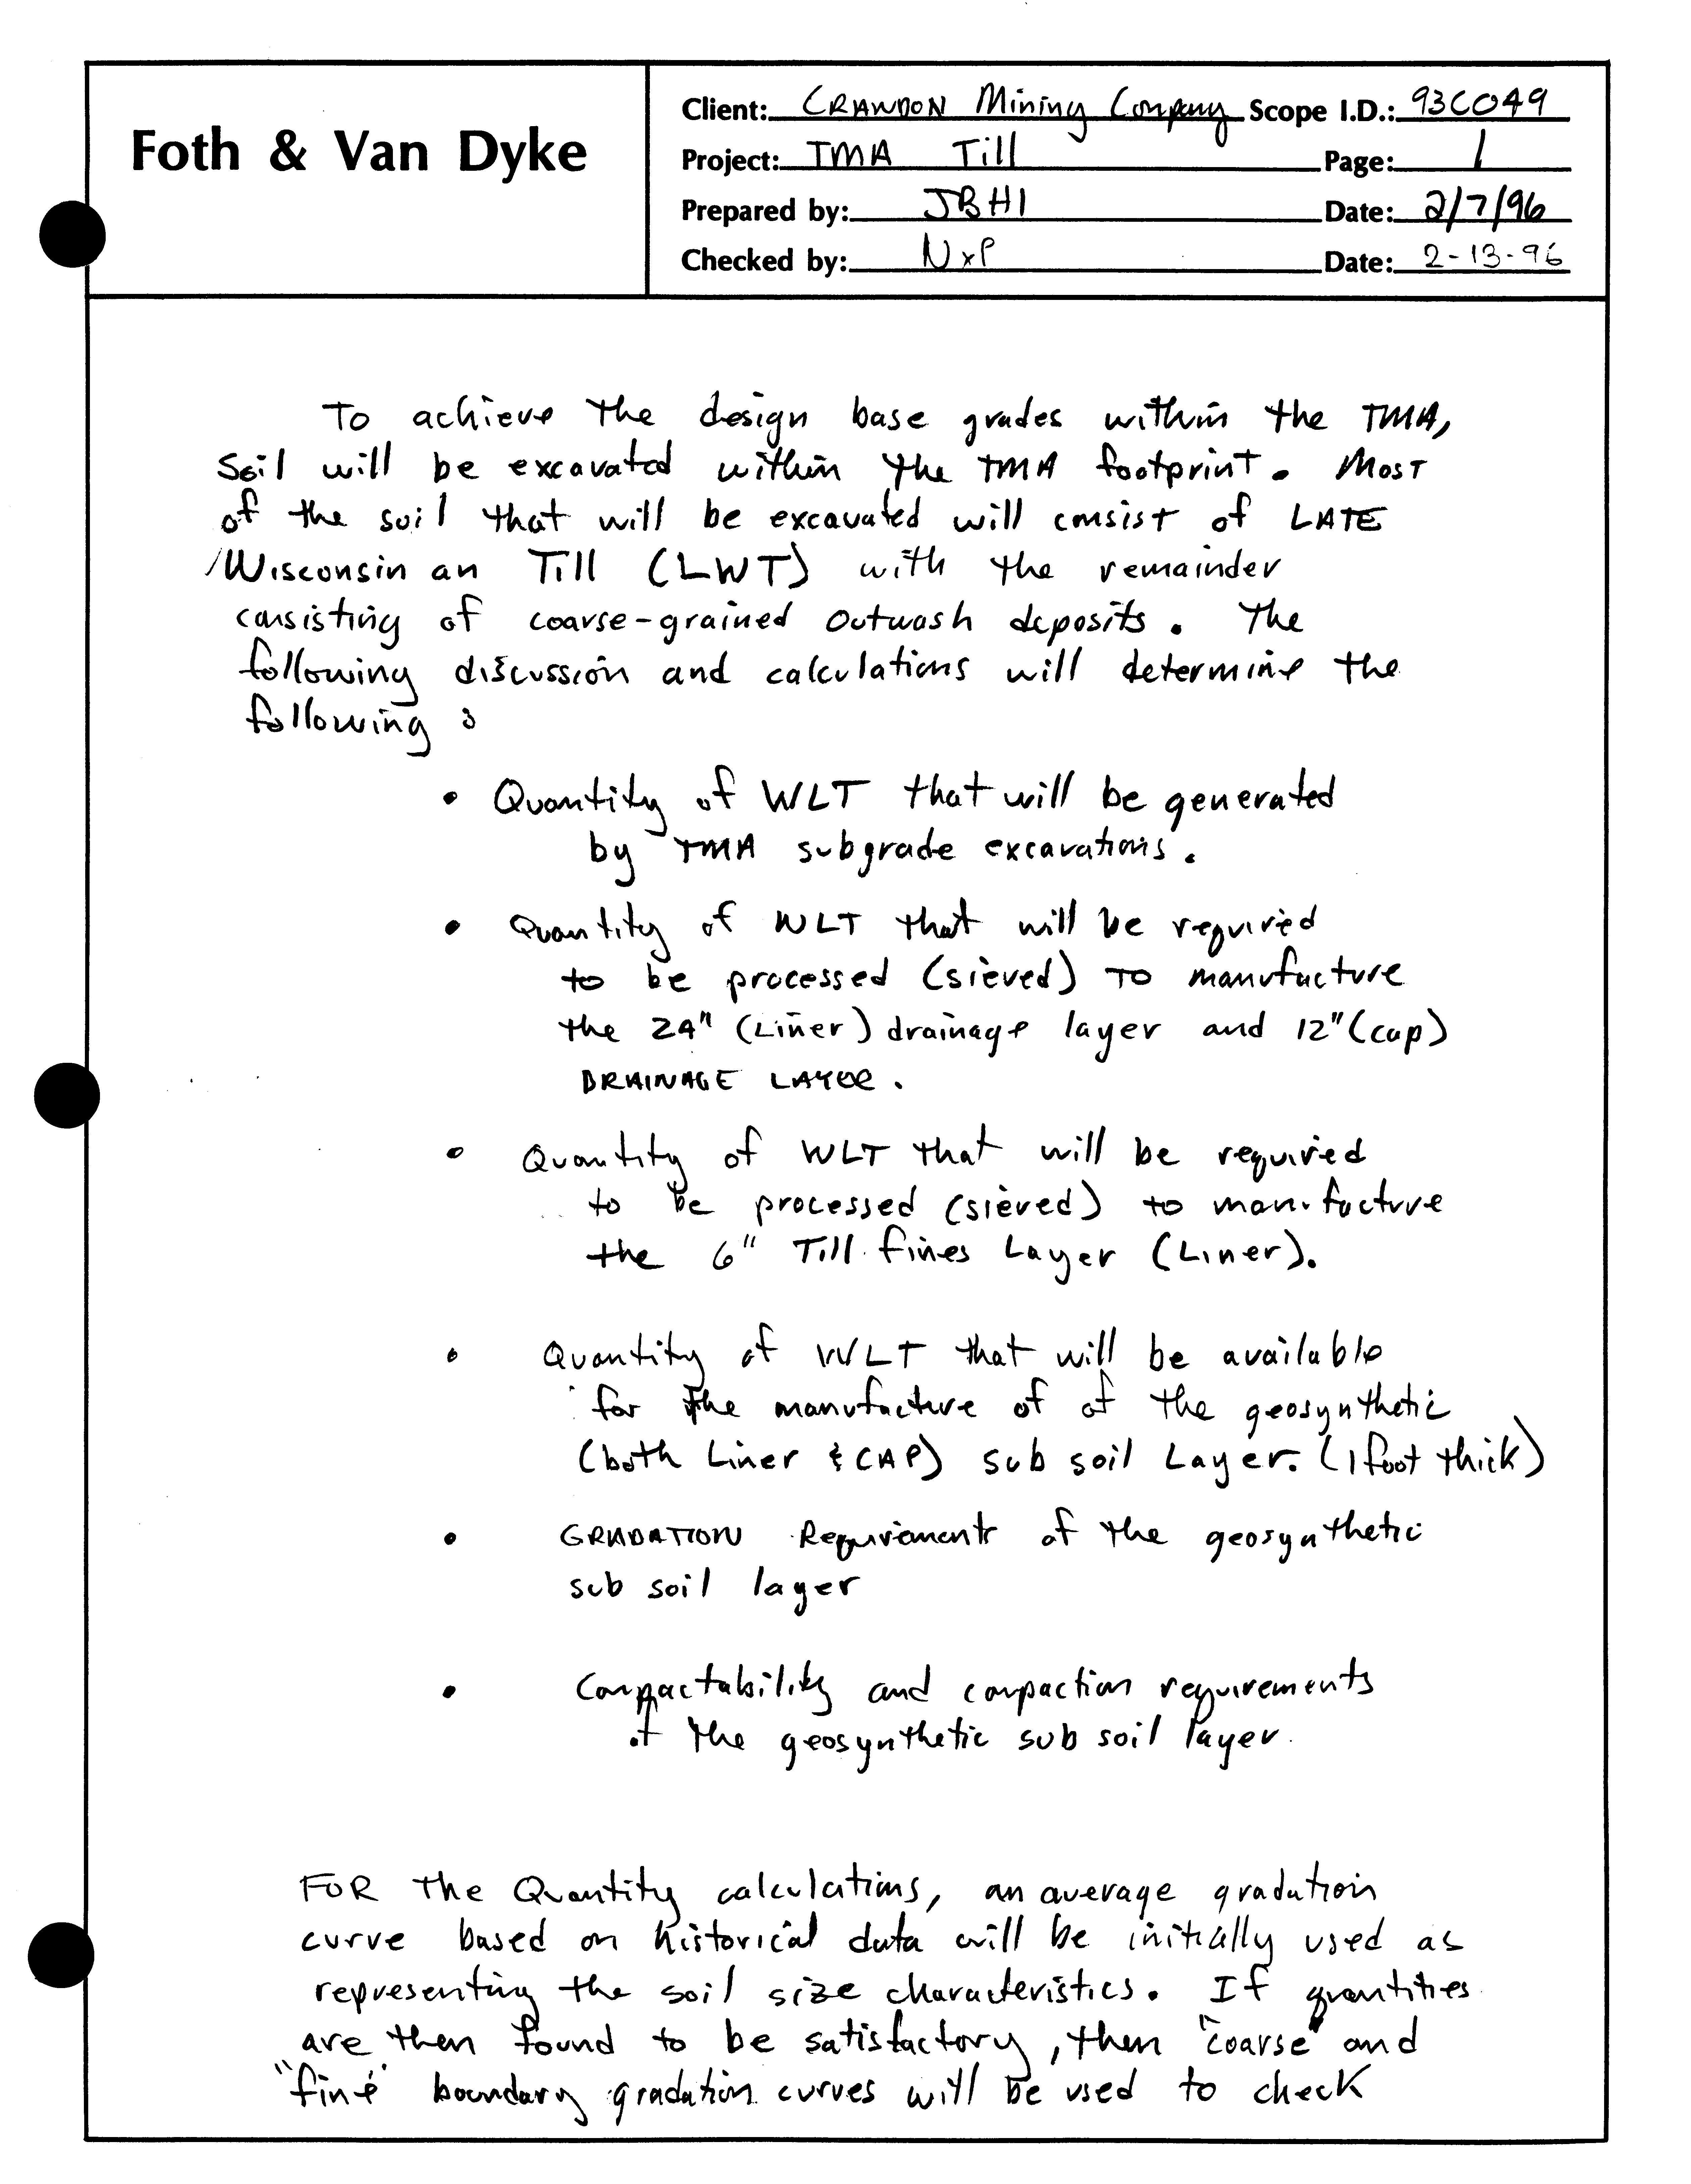 Foth & Van Dyke
Client: CRANDON Mining Company Scope I.D.: 93C049
Project: TMA Till Page: 1
Prepared by: JBH1 Date: 2/7/96
Checked by: NxP Date: 2-13-96
To achieve the design base grades within the TMA,
Soil will be excavated within the TMA footprint. Most
of the soil that will be excavated will consist of LATE
Wisconsin an Till (LWT) with the remainder
consisting of coarse-grained outwash deposits. The
following discussion and calculations will determine the
following:
• Quantity of WLT that will be generated
by TMA subgrade excavations.
• Quantity of WLT that will be required
to be processed (sieved) TO manufacture
the 24" (Liner) drainage layer and 12" (cap)
DRAINAGE LAYER.
• Quantity of WLT that will be required
to be processed (sieved) to manufacture
the 6" Till fines Layer (Liner).
• Quantity of WLT that will be available
for the manufacture of of the geosynthetic
(both Liner & CAP) sub soil Layer. (1 foot thick)
• GRADATION Requirements of the geosynthetic
sub soil layer
• Compactability and compaction requirements
of the geosynthetic sub soil layer.
FOR the Quantity calculations, an average gradation
curve based on historical data will be initially used as
representing the soil size characteristics. If quantities
are then found to be satisfactory, then "coarse" and
"fine" boundary gradation curves will be used to check